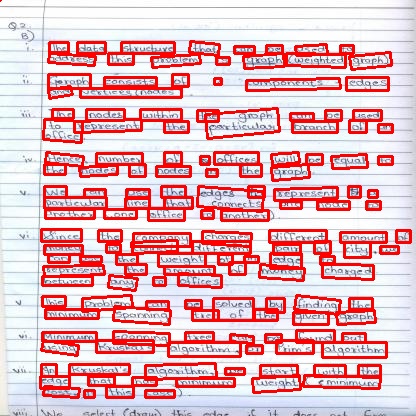 Q2.
B)
i. The data structure that can be used to
address this problem is graph (weighted graph)
ii. graph consists of 2 components edges
and vertices/nodes
iii. The nodes within the graph can be used
to represent the particular branch of an
office
iv. Hence number of offices will be equal to
the nodes of nodes in the graph
v. We can use the edges to represent
particular line that connects
another (one office to another)
vi. Since the company charges different amount of
money to connect different pair of city,
the weight of edge
represent the amount of money charged
between any offices
v. This problem can be solved by finding the
minimum spanning tree of the given graph
vi. Minimum spanning tree can be found out
using Kruskal's algorithm or Prim's algorithm
vii. In Kruskal's algorithm we start with the
edge that has minimum weight (minimum
cost in this case)
viii. We select (draw) this edge if it does not form